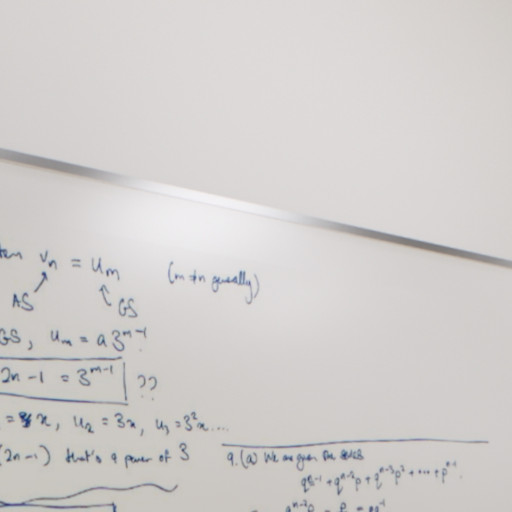 vn = um (m≠n generally)
AS GS
GS, um = a3^m-1
2n-1 = 3^m-1 ??
= x, u2 = 3x, u3 = 3²x...
(2n-1) that's a power of 3
9.(a) We are given the series
q^n-1 + q^n-2p + q^n-3p² + ... + p^n-1